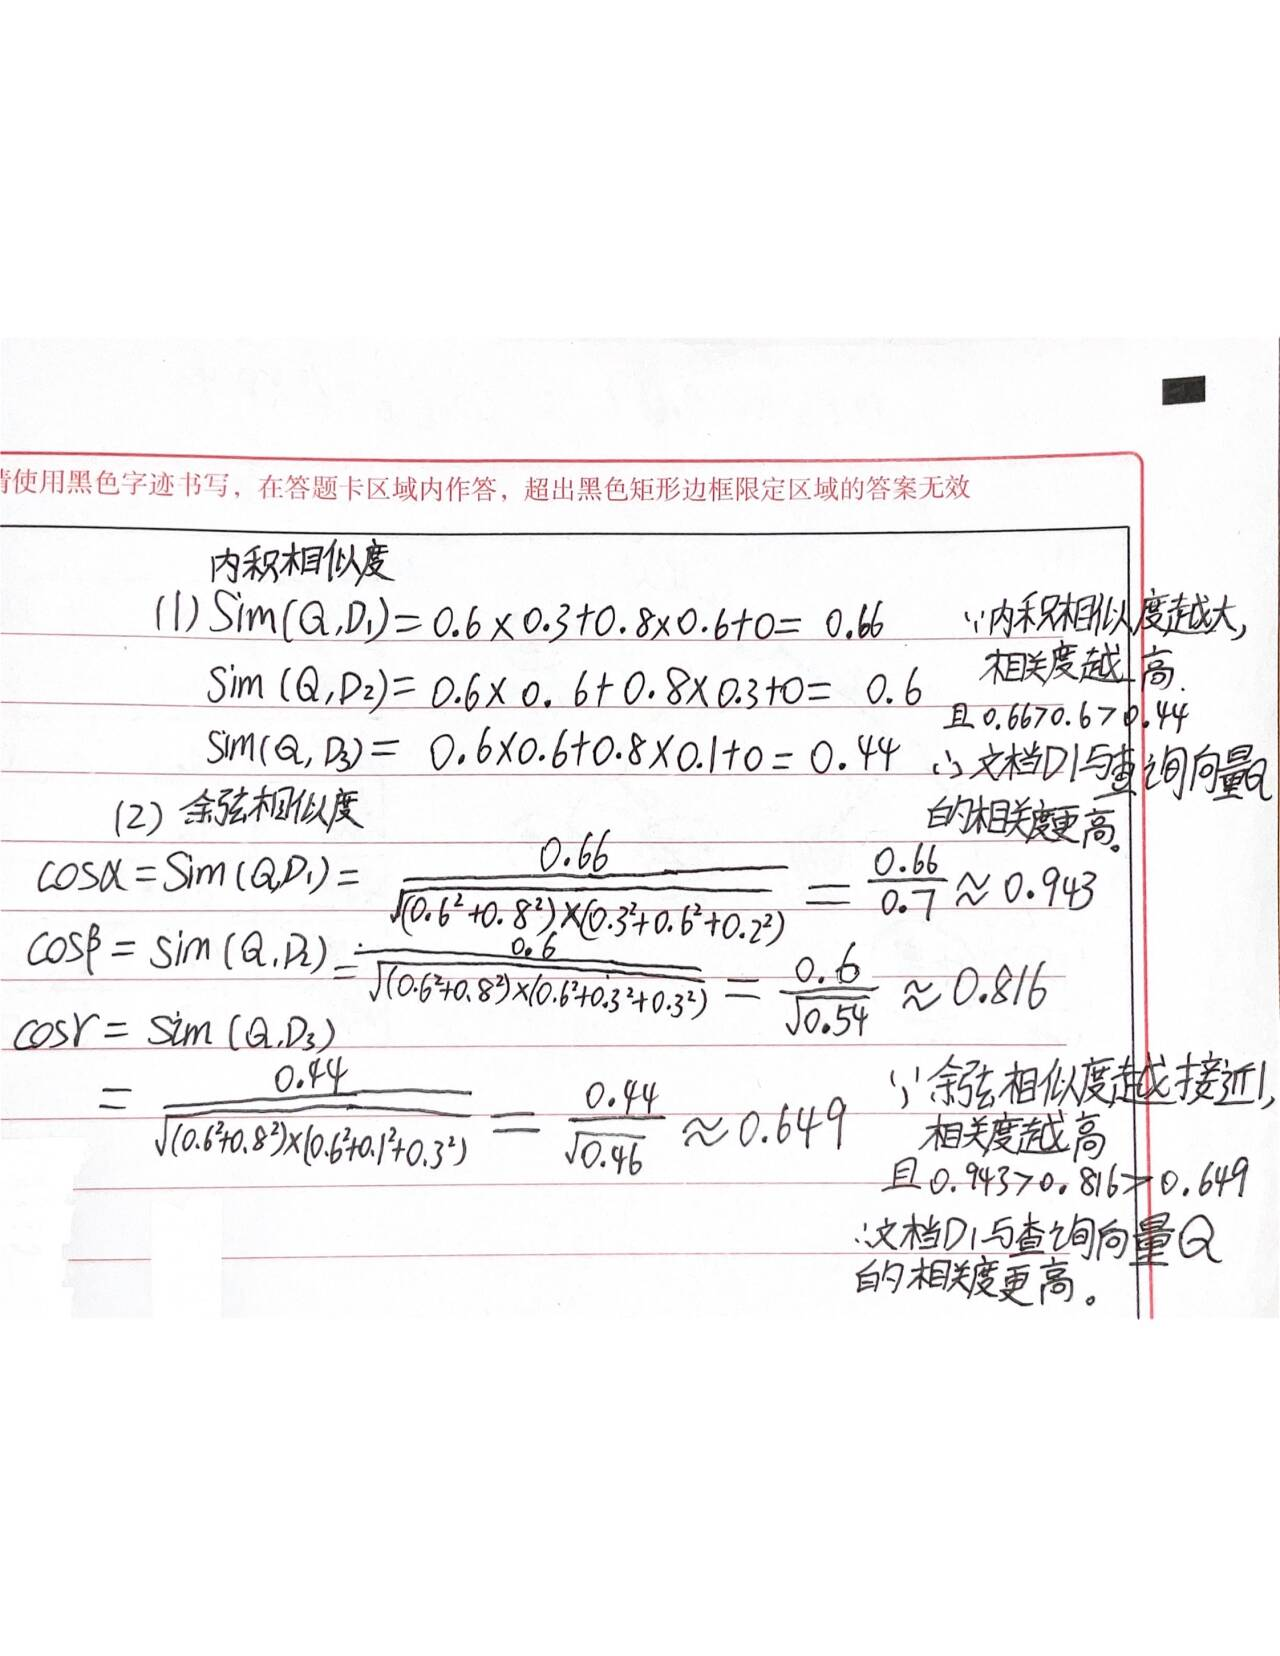 请使用黑色字迹书写，在答题卡区域内作答，超出黑色矩形边框限定区域的答案无效
内积相似度
(1) Sim(Q,D₁)= 0.6×0.3+0.8×0.6+0= 0.66
Sim (Q,D₂)= 0.6×0.6+0.8×0.3+0= 0.6
Sim(Q,D₃)= 0.6×0.6+0.8×0.1+0=0.44
∵内积相似度越大,
相关度越高.
且0.66>0.6>0.44
∴文档D1与查询向量Q
的相关度更高。
(2) 余弦相似度
cosα=Sim(Q,D₁)= 0.66/√(0.6²+0.8²)×(0.3²+0.6²+0.2²) = 0.66/0.7 ≈0.943
cosβ=Sim(Q,D₂)= 0.6/√(0.6²+0.8²)×(0.6²+0.3²+0.3²) = 0.6/√0.54 ≈0.816
cosγ= Sim (Q,D₃)
= 0.44/√(0.6²+0.8²)×(0.6²+0.1²+0.3²) = 0.44/√0.46 ≈0.649
∵余弦相似度越接近1,
相关度越高
且0.943>0.816>0.649
∴文档D1与查询向量Q
的相关度更高。